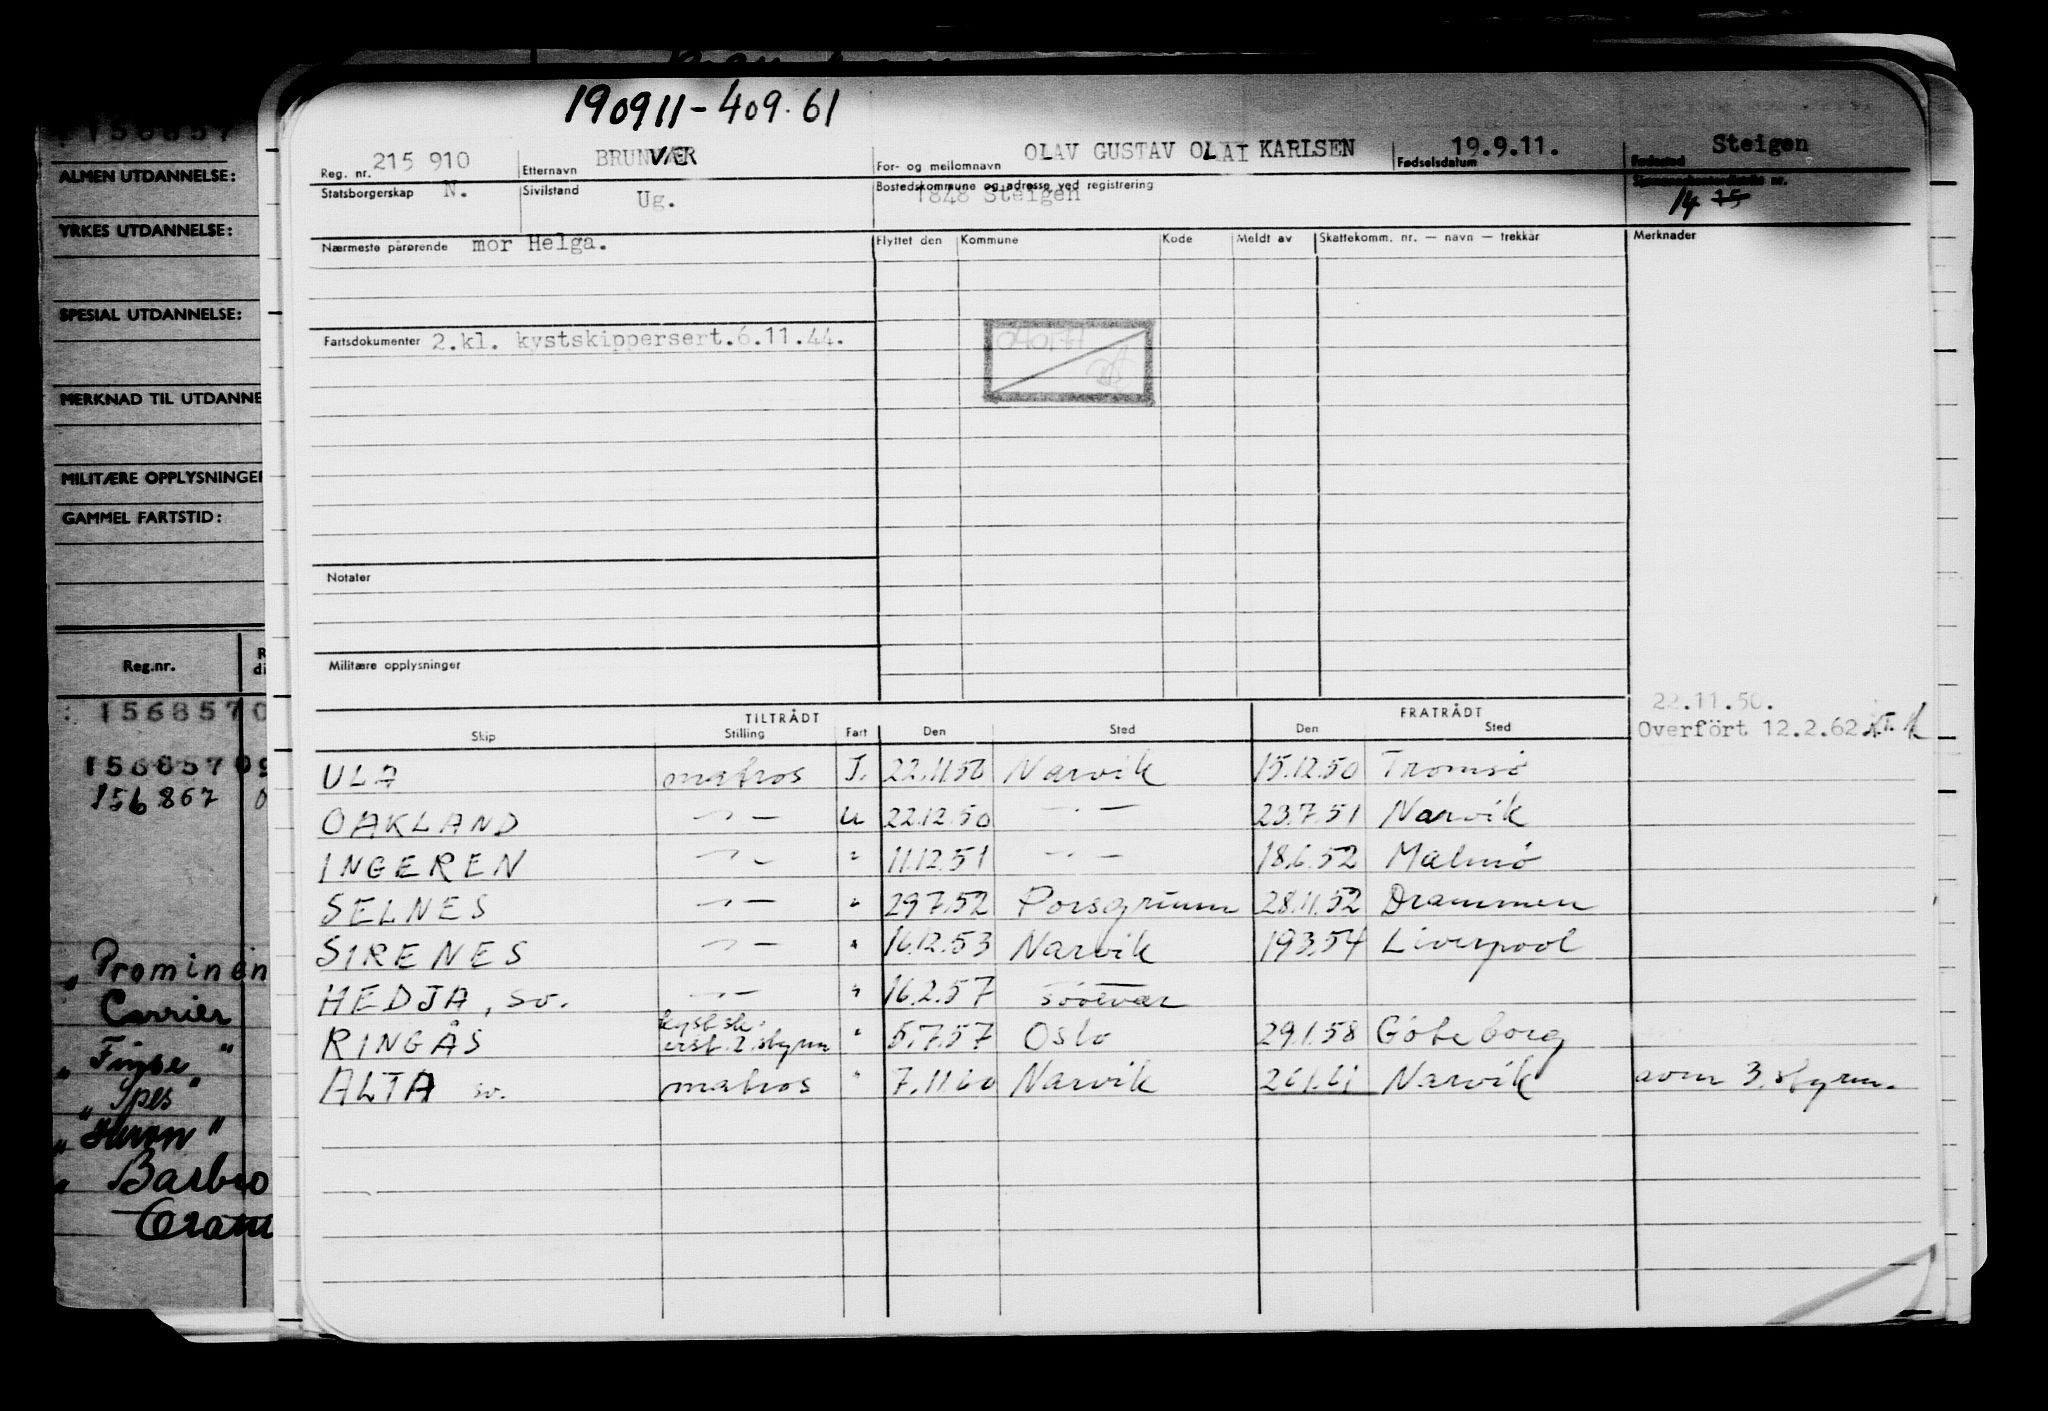 190911-409.61
Reg. nr. 215 910 Etternavn BRUNVÆR For- og mellomnavn OLAV GUSTAV OLAI KARLSEN Fødselsdatum 19.9.11. Fødested Steigen
Statsborgerskap N. Sivilstand Ug. Bostedskommune og adresse ved registrering 1848 Steigen 14 15
Nærmeste pårørende mor Helga. Flyttet den Kommune Kode Meldt av Skattekomm. nr. — navn — trekkår Merknader
Fartsdokumenter 2.kl. kystskippersert.6.11.44.
Notater
Militære opplysninger
22.11.50.
TILTRÅDT FRATRÅDT
Skip Stilling Fart Den Sted Den Sted Overført 12.2.62
ULA matros I. 22.11.50 Narvik 15.12.50 Tromsø
OAKLAND —"— U 22.12.50 —"— 23.7.51 Narvik
INGEREN —"— " 11.12.51 —"— 18.6.52 Malmö
SELNES —"— " 29.7.52 Porsgrunn 28.11.52 Drammen
SIRENES —"— " 16.12.53 Narvik 19.3.54 Liverpool
HEDJA, sv. —"— " 16.2.57
RINGÅS kystsk. " 5.7.57 Oslo 29.1.58 Göteborg
2. styrm
ALTA sv. matros " 7.11.60 Narvik 26.1.61 Narvik avm 3. styrm.
156857
ALMEN UTDANNELSE:
YRKES UTDANNELSE:
SPESIAL UTDANNELSE:
MERKNAD TIL UTDANNE
MILITÆRE OPPLYSNINGER
GAMMEL FARTSTID:
Reg.nr. R
di
: 1568570
15685709
156867 0
" Prominen
Carrier
"
" Spes "
" Heron "
" Barbro